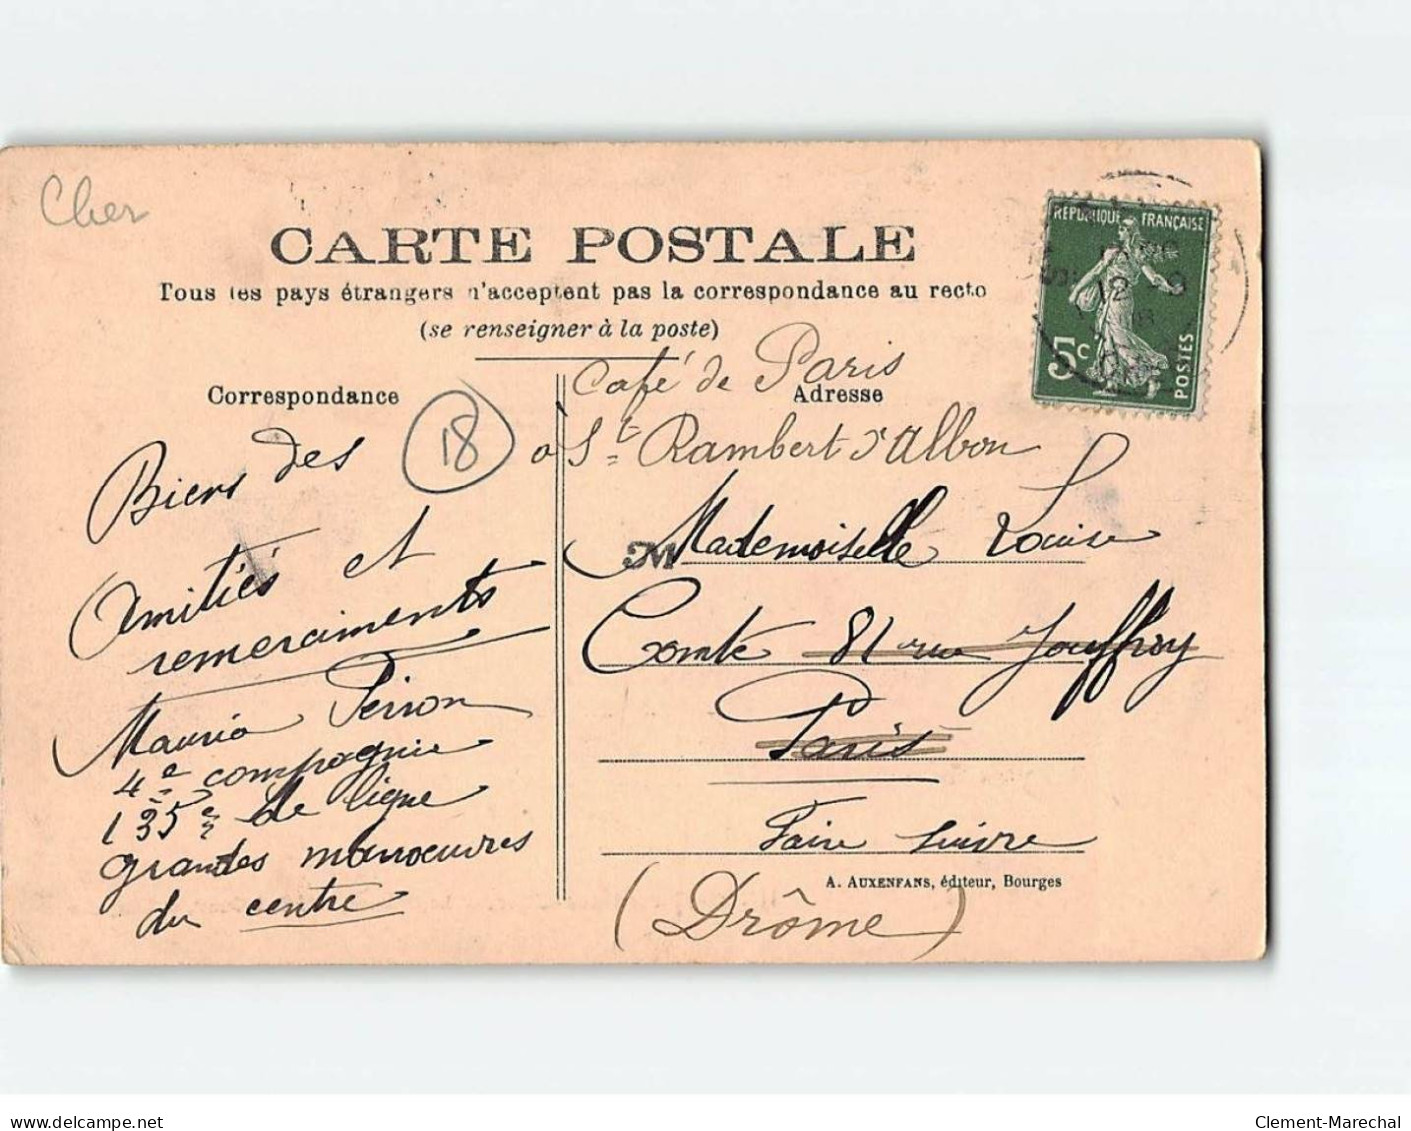 Cher
CARTE POSTALE
Tous les pays étrangers n'acceptent pas la correspondance au recto
(se renseigner à la poste)
RÉPUBLIQUE FRANÇAISE
5c
POSTES
12 9
Correspondance
18
Biens des
Amitiés et
remerciments
Perron
4e compagnie
135e de ligne
grandes manoeuvres
du centre
Café de Paris
Adresse
à St Rambert d'Albon
M
Mademoiselle Louise
Comte 81 rue Jouffroy
Paris
Faire suivre
A. AUXENFANS, éditeur, Bourges
(Drôme)
delcampe.net
Clement-Marechal